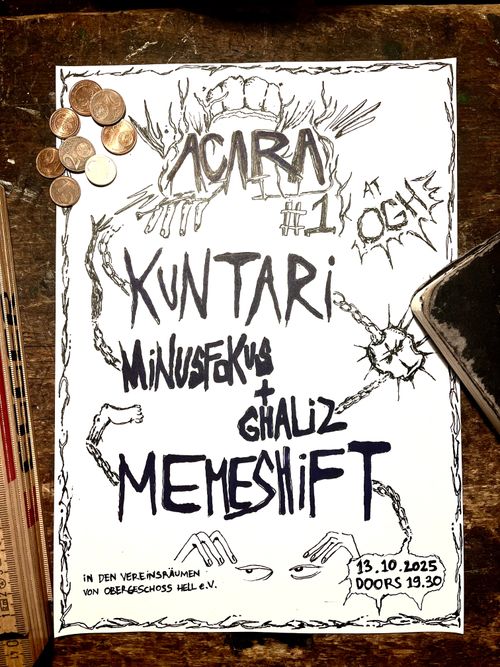 ACARA
#1
AT
OGH
KUNTARi
MiNUSFOKUS
+
GHALiZ
MEMESHiFT
iN DEN VEREiNSRÄUMEN
VON OBERGESCHOSS HELL e.V.
13.10.2025
DOORS 19.30